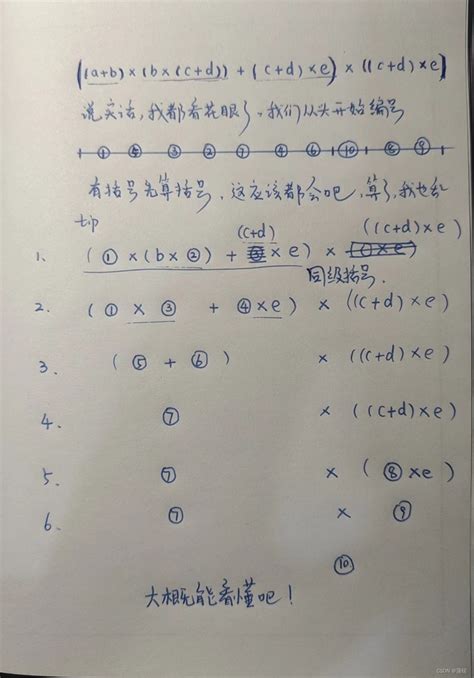 ((a+b)×(b×(c+d))+(c+d)×e)×((c+d)×e)
说实话，我都看花眼了，我们从头开始编号
① ⑤ ③ ② ⑦ ④ ⑥ ⑩ ⑧ ⑨
有括号先算括号，这应该都会吧，算了，我也纟
tip
(c+d) ((c+d)×e)
1. (①×(b×②)+ ×e) ×
同级括号.
2. (①×③ + ④×e) × ((c+d)×e)
3. (⑤+⑥) × ((c+d)×e)
4. ⑦ × ((c+d)×e)
5. ⑦ × (⑧×e)
6. ⑦ × ⑨
⑩
大概能看懂吧！